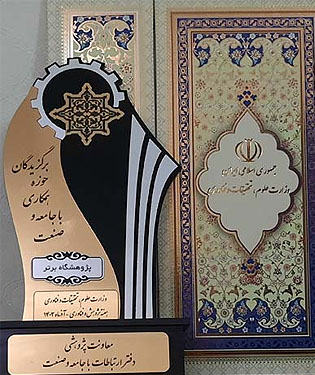 برگزیدگان
حوزه
همکاری
با جامعه و
صنعت
پژوهشگاه برتر
وزارت علوم، تحقیقات و فناوری
هفته پژوهش و فناوری - آذرماه ۱۴۰۲
معاونت پژوهشی
دفتر ارتباطات با جامعه و صنعت
جمهوری اسلامی ایران
وزارت علوم، تحقیقات و فناوری